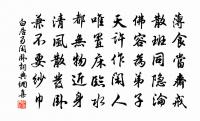 薄食當齋戒
散班同隱淪
佛容為弟子
天許作閑人
唯置床臨水
都無物近身
清風散發臥
兼不要紗巾
白居易閑臥詞典網集